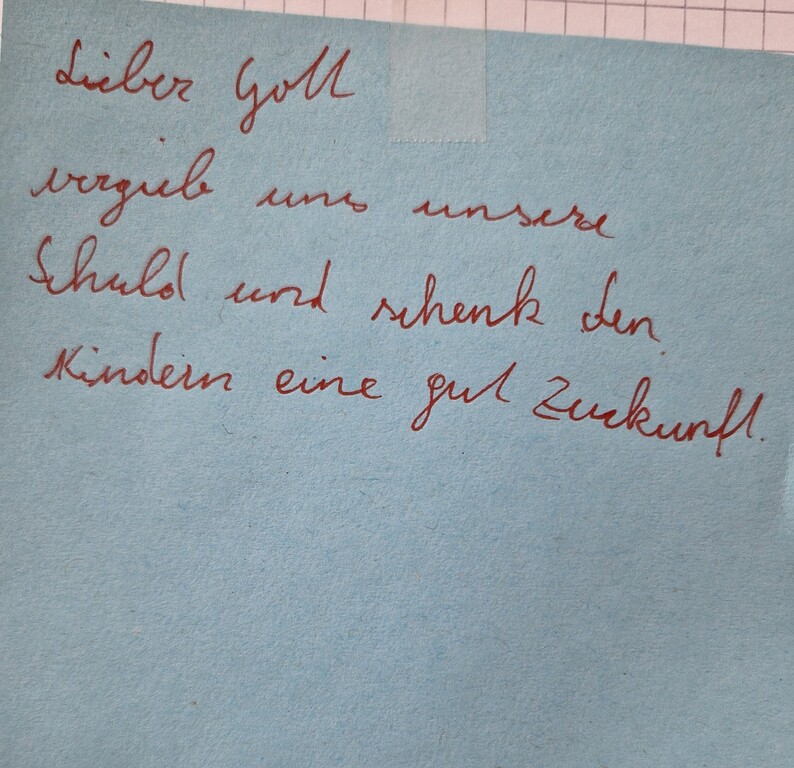 Lieber Gott
vergieb uns unsere
Schuld und schenk den
Kindern eine gut Zuckunft.